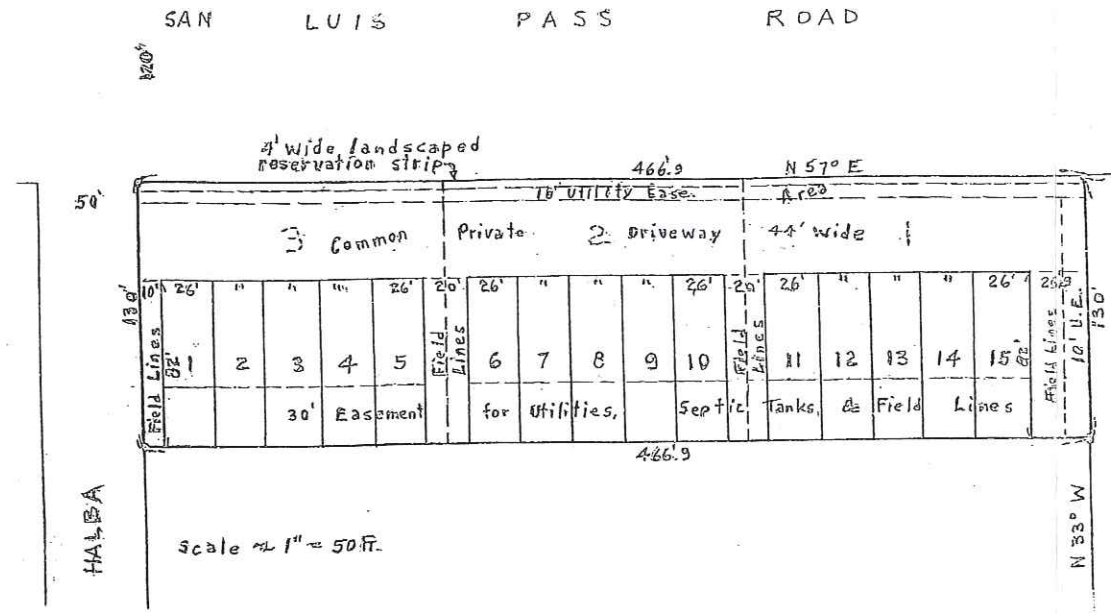 SAN LUIS PASS ROAD
120'
4' wide landscaped
reservation strip
466.9 N 57° E
50'
16' Utility Ease. Area
3 Common Private 2 Driveway 44' wide 1
130'
10' 26' " " " 26' 20' 26' " " " 26' 20' 26' " " " 26' 25.9
Field Lines
82'
1 2 3 4 5
Field Lines
6 7 8 9 10
Field Lines
11 12 13 14 15
82'
Field Lines
10' U.E.
130'
30' Easement for Utilities, Septic Tanks, & Field Lines
466.9
HALBA
Scale ~ 1" = 50 Ft.
N 33° W